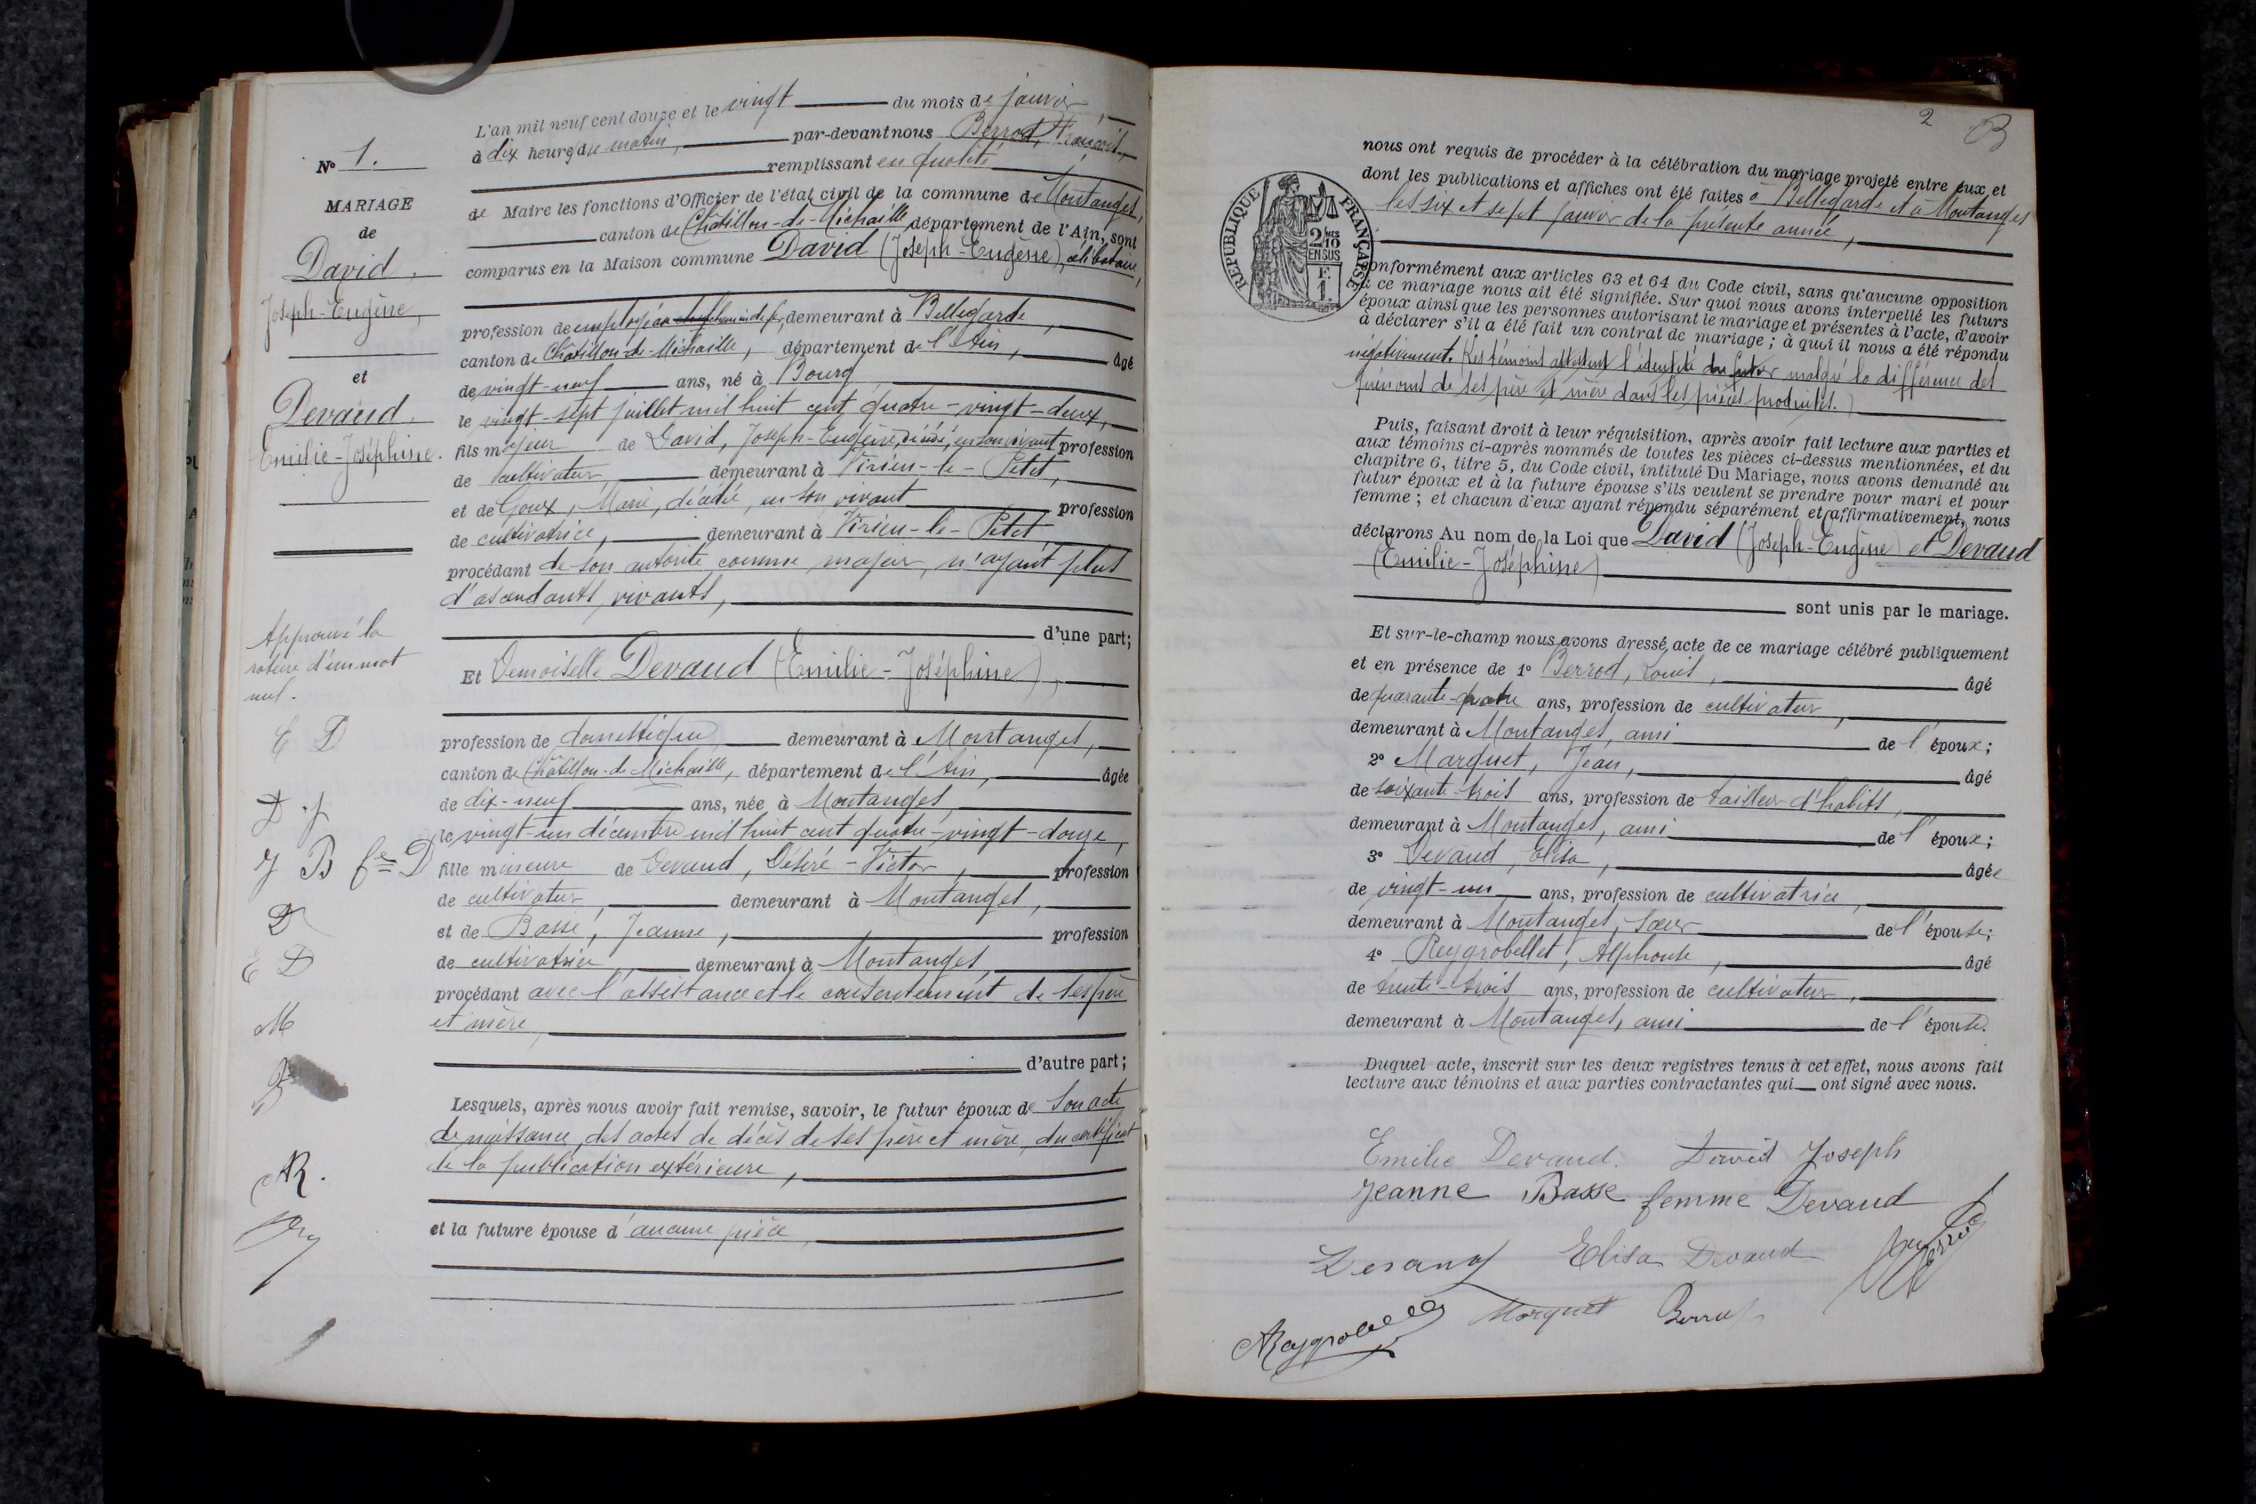 L'an mil neuf cent douze et le vingt du mois de janvier,
à dix heures du matin, par-devant nous Berrod, François,
remplissant en qualité
de Maire les fonctions d'Officier de l'état civil de la commune de Montanges,
canton de Châtillon-de-Michaille département de l'Ain, sont
comparus en la Maison commune David (Joseph-Eugène), célibataire,
profession de employé au chemin de fer, demeurant à Bellegarde,
canton de Châtillon-de-Michaille, département de l'Ain, âgé
de vingt-neuf ans, né à Bourg
le vingt-sept juillet mil huit cent quatre-vingt-deux,
fils majeur de David, Joseph-Eugène, décédé, en son vivant profession
de cultivateur, demeurant à Virieu-le-Petit,
et de Goux, Marie, décédée, en son vivant profession
de cultivatrice, demeurant à Virieu-le-Petit,
procédant de son autorité comme majeur, n'ayant plus
d'ascendants vivants,
d'une part;
Et Demoiselle Devaud (Emilie-Joséphine),
profession de domestique demeurant à Montanges,
canton de Châtillon-de-Michaille, département de l'Ain, âgée
de dix-neuf ans, née à Montanges
le vingt-un décembre mil huit cent quatre-vingt-douze,
fille mineure de Devaud, Désiré-Victor, profession
de cultivateur, demeurant à Montanges,
et de Bassé, Jeanne, profession
de cultivatrice demeurant à Montanges,
procédant avec l'assistance et le consentement de ses père
et mère,
d'autre part;
Lesquels, après nous avoir fait remise, savoir, le futur époux de son acte
de naissance, des actes de décès de ses père et mère, du certificat
de la publication extérieure,
et la future épouse d'aucune pièce,
No 1.
MARIAGE
de
David,
Joseph-Eugène,
et
Devaud,
Emilie-Joséphine.
Approuvé la
rature d'un mot
nul.
E D
D. J
J B fe D
D
E D
M
B
AR.
2 B
REPUBLIQUE FRANÇAISE
2/10
EN SUS
F.
1.
nous ont requis de procéder à la célébration du mariage projeté entre eux et
dont les publications et affiches ont été faites à Bellegarde et à Montanges
les six et sept janvier de la présente année,
conformément aux articles 63 et 64 du Code civil, sans qu'aucune opposition
à ce mariage nous ait été signifiée. Sur quoi nous avons interpellé les futurs
époux ainsi que les personnes autorisant le mariage et présentes à l'acte, d'avoir
à déclarer s'il a été fait un contrat de mariage; à quoi il nous a été répondu
négativement. (Les témoins attestent l'identité du futur malgré la différence des
prénoms de ses père et mère dans les pièces produites.)
Puis, faisant droit à leur réquisition, après avoir fait lecture aux parties et
aux témoins ci-après nommés de toutes les pièces ci-dessus mentionnées, et du
chapitre 6, titre 5, du Code civil, intitulé Du Mariage, nous avons demandé au
futur époux et à la future épouse s'ils veulent se prendre pour mari et pour
femme; et chacun d'eux ayant répondu séparément et affirmativement, nous
déclarons Au nom de la Loi que David (Joseph-Eugène) et Devaud
(Emilie-Joséphine)
sont unis par le mariage.
Et sur-le-champ nous avons dressé acte de ce mariage célébré publiquement
et en présence de 1o Berrod, Louis, âgé
de quarante-quatre ans, profession de cultivateur,
demeurant à Montanges, ami de l'époux;
2o Marquet, Jean, âgé
de soixante-trois ans, profession de tailleur d'habits,
demeurant à Montanges, ami de l'époux;
3o Devaud, Elisa, âgée
de vingt-un ans, profession de cultivatrice,
demeurant à Montanges, sœur de l'épouse;
4o Reygrobellet, Alphonse, âgé
de trente-trois ans, profession de cultivateur,
demeurant à Montanges, ami de l'épouse.
Duquel acte, inscrit sur les deux registres tenus à cet effet, nous avons fait
lecture aux témoins et aux parties contractantes qui ont signé avec nous.
Emilie Devaud. David Joseph
Jeanne Basse femme Devaud
Devaud Elisa Devaud
Marquet Berrod